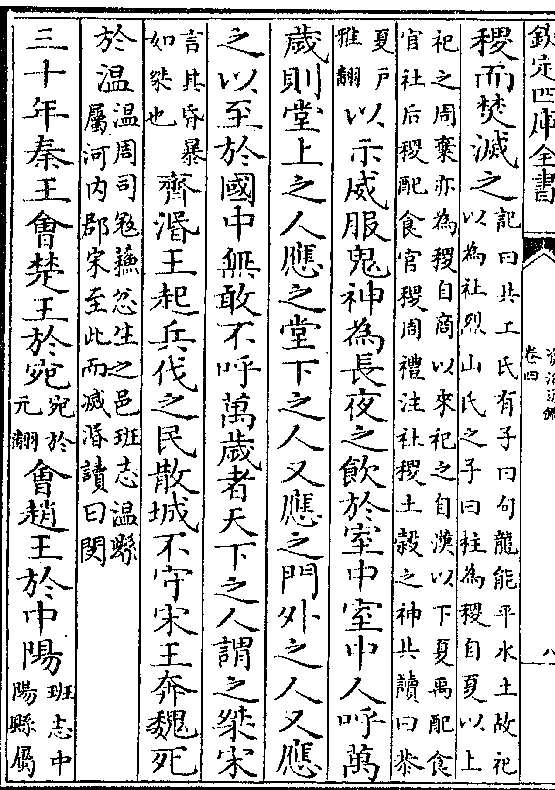 欽定四庫全書
資治通鑑
卷四
八
稷而焚滅之記曰共工氏有子曰句龍能平水土故祀
以為社烈山氏之子曰柱為稷自夏以上
祀之周棄亦為稷自商以來祀之自漢以下夏禹配食
官社后稷配食官稷周禮注社稷土穀之神共讀曰恭
夏戶
雅翻以示威服鬼神為長夜之飲於室中室中人呼萬
歲則堂上之人應之堂下之人又應之門外之人又應
之以至於國中無敢不呼萬歲者天下之人謂之桀宋
言其昏暴
如桀也齊湣王起兵伐之民散城不守宋王奔魏死
於溫溫周司寇蘇忿生之邑班志溫縣
屬河內郡宋至此而滅湣讀曰閔
三十年秦王會楚王於宛宛於
元翻會趙王於中陽班志中
陽縣屬